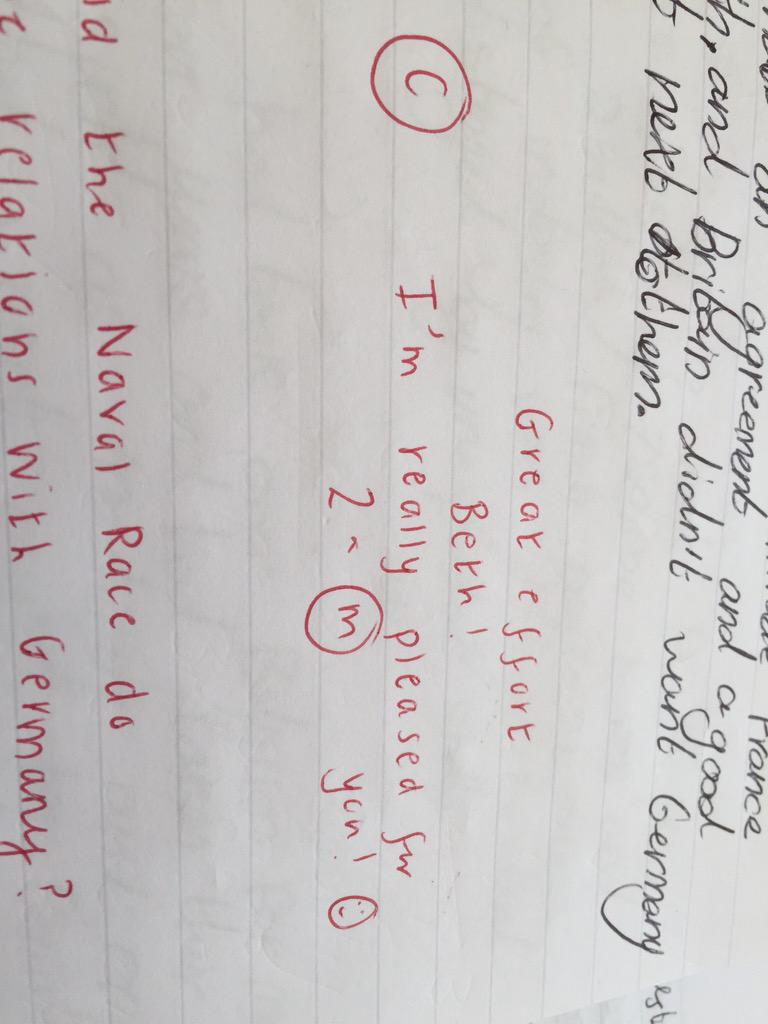 France
an agreement and a good
and Britain didn't want Germany
next to them.
Great effort
Beth!
C I'm really pleased for
2 - m you!
the Naval Race do
relations with Germany?